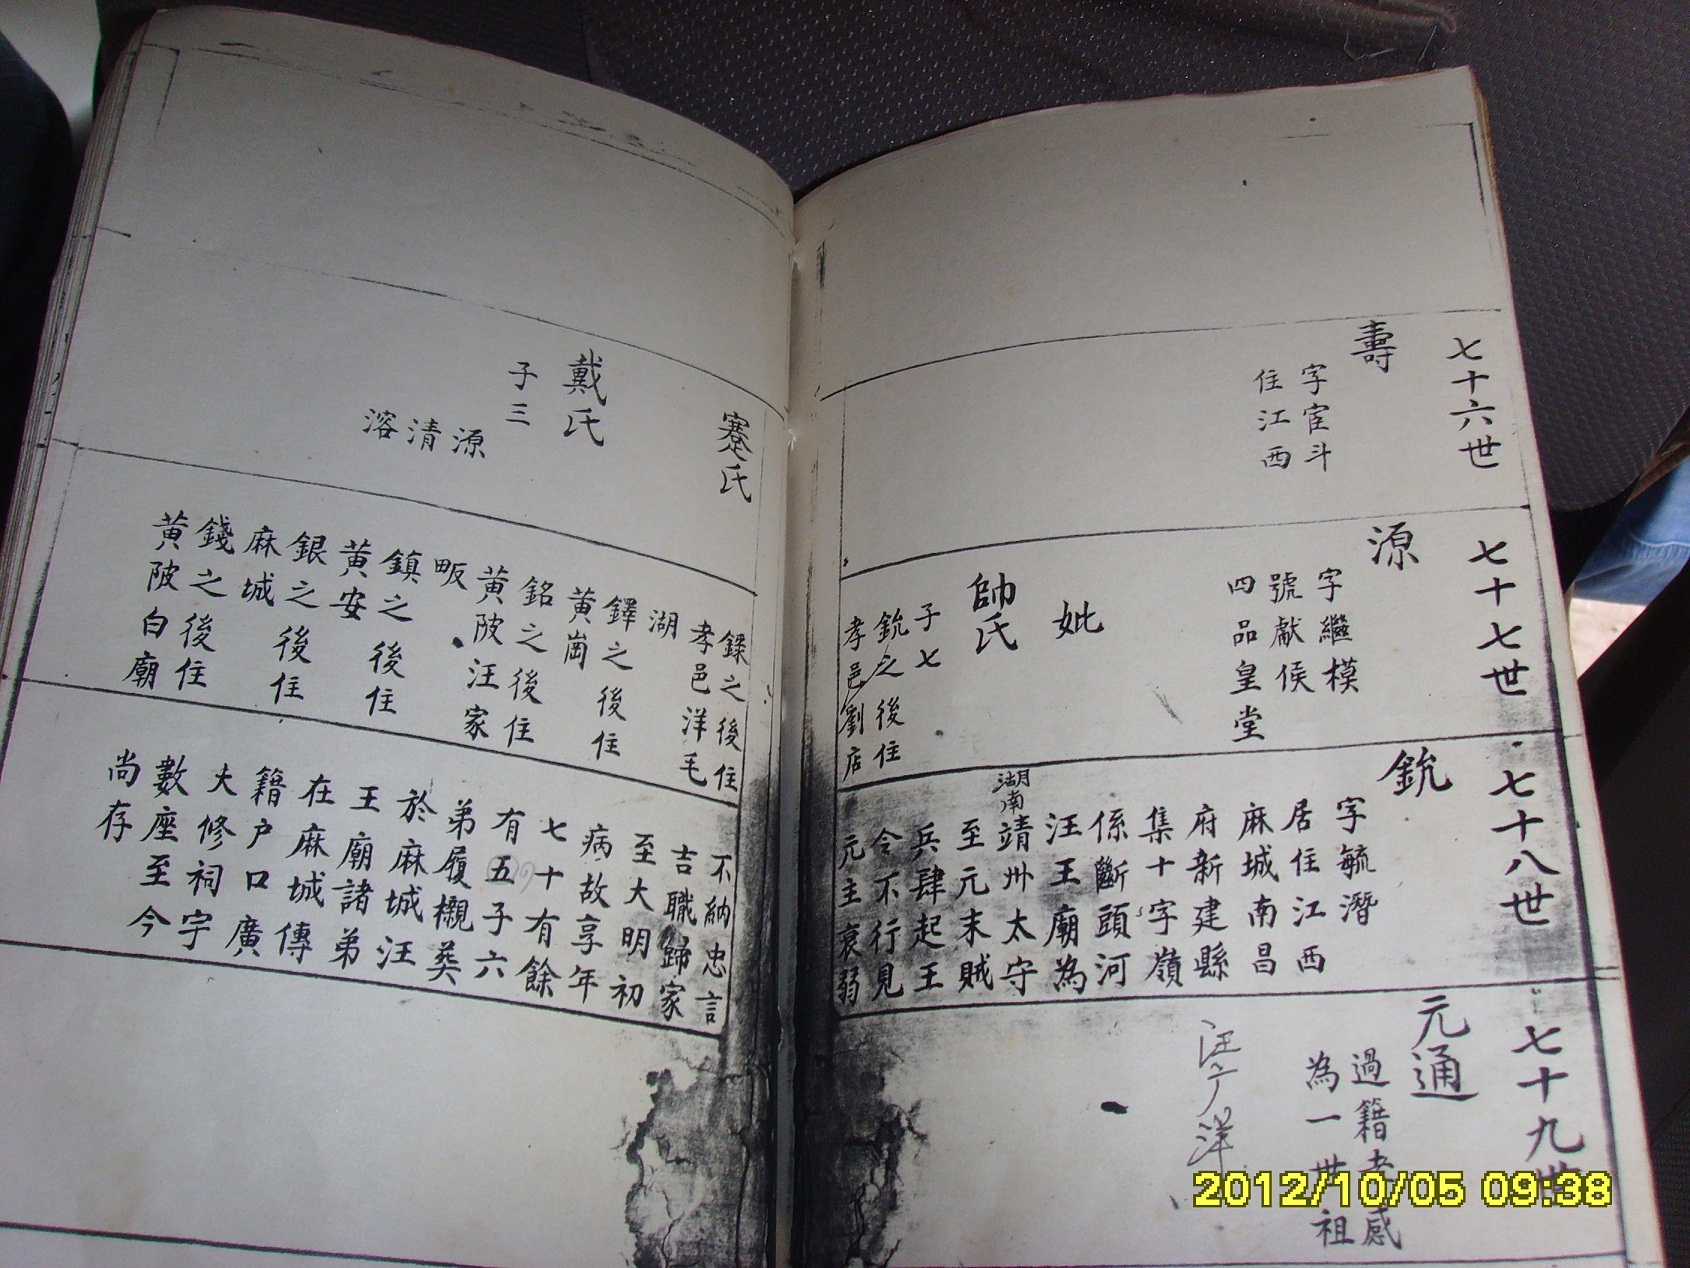 七十六世
壽
字宦斗
住江西
蹇氏
戴氏
子三
源
清
溶
七十七世
源
字繼模
號獻侯
四品皇堂
妣
帥氏
子七
銃之後住
孝邑劉店
鐰之後住
孝邑洋毛
湖
鐸之後住
黃崗
銘之後住
黃陂汪家
畈
鎮之後住
黃安
銀之後住
麻城
錢之後住
黃陂白廟
七十八世
銃
字毓潛
居住江西
麻城南昌
府新建縣
集十字嶺
係斷頭河
汪王廟為
湖南
靖州太守
至元末賊
兵肆起王
令不行見
元主衰弱
不納忠言
吉職歸家
至大明初
病故享年
七十有餘
有五子六
弟履櫬葬
於麻城汪
王廟諸弟
在麻城傳
籍户口廣
大修祠宇
數座至今
尚存
七十九世
元通
過籍孝感
為一世祖
2012/10/05 09:38